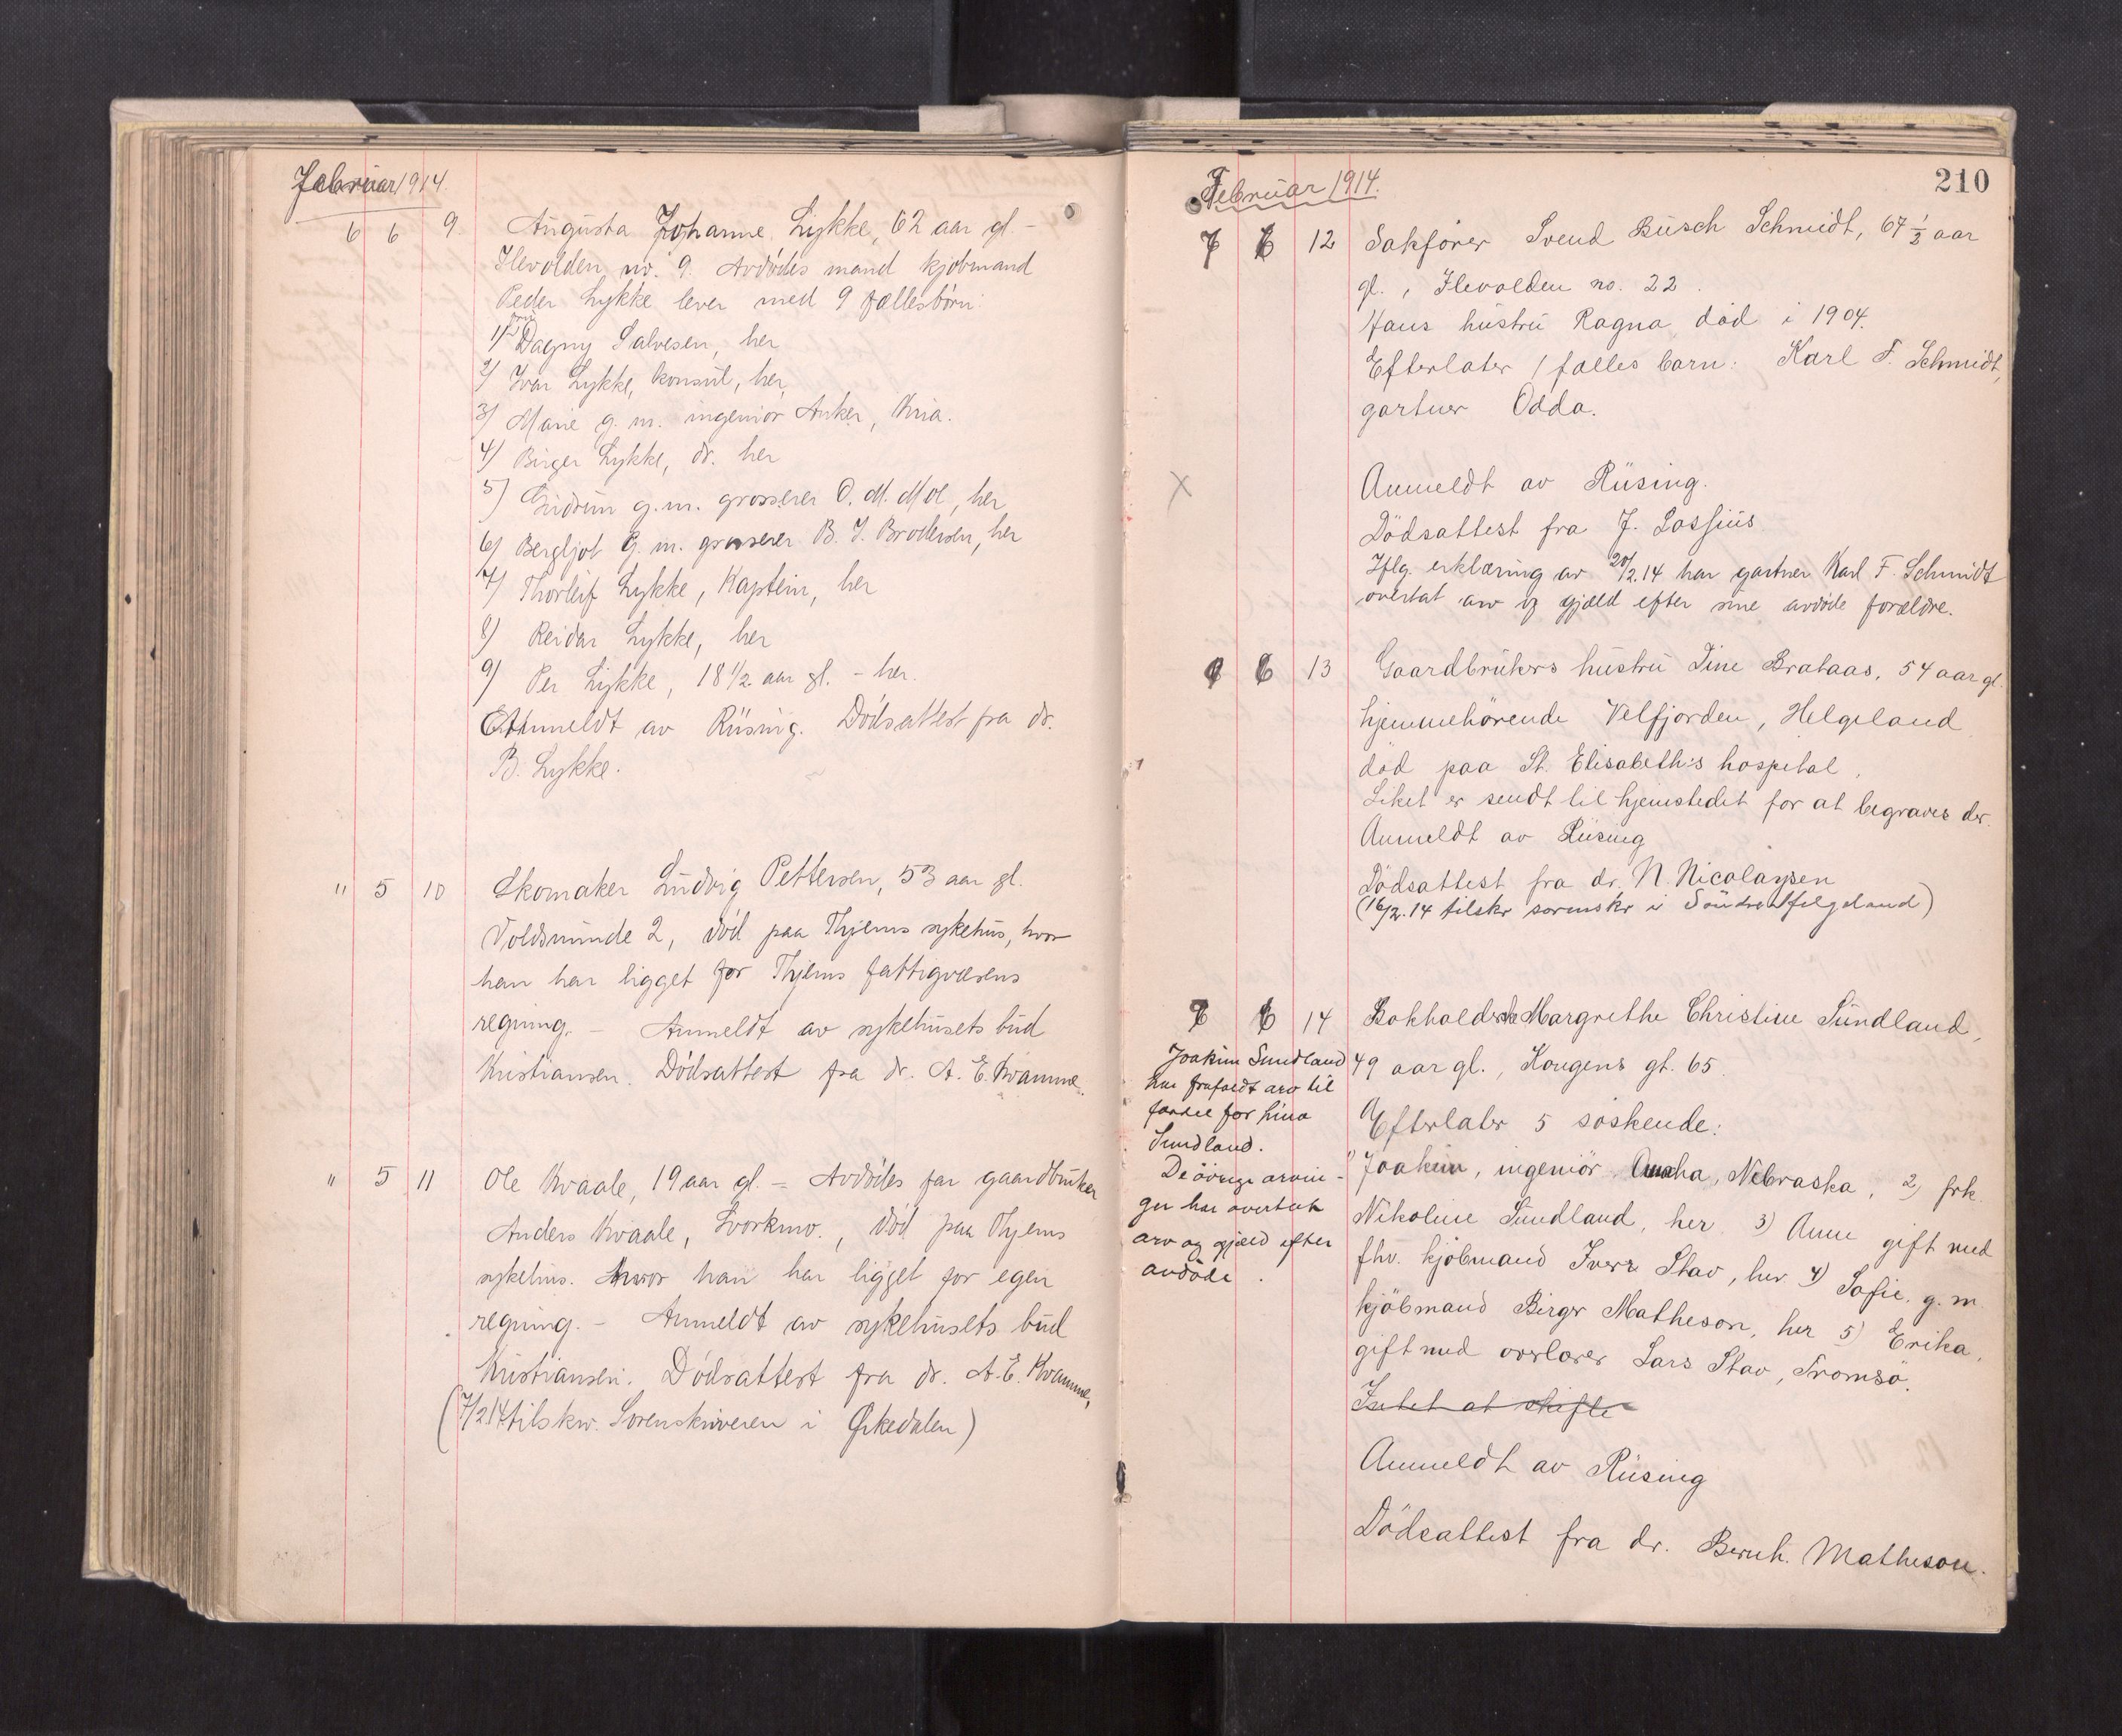 Februar 1914.
6 6 9 Augusta Johanne Lykke, 62 aar gl -
Ilevolden nr. 9. Avdødes mand kjøbmand
Peder Lykke lever med 9 fællesbørn:
1) fru Dagny Salvesen, her
2) Ivar Lykke, konsul, her
3) Marie g. m. ingeniør Anker, Kria.
4) Birger Lykke, dr. her
5) Gudrun g.m. grosserer O. M. Moe, her
6) Bergljot G. m. grosserer B. I. Brodersen, her
7) Thorleif Lykke, Kaptein, her
8) Reidar Lykke, her
9) Per Lykke, 18 1/2 aar gl. - her.
Anmeldt av Rüsing. Dødsattest fra dr.
B. Lykke.
" 5 10 Skomaker Ludvig Pettersen, 53 aar gl.
Voldsminde 2, død paa Thjems sykehus, hvor
han har ligget for Thjems fattigvæsens
regning. - Anmeldt av sykehusets bud
Kristiansen. Dødsattest fra dr. A. E. Kvamme.
" 5 11 Ole Kvaale, 19 aar gl. - Avdødes far gaardbruker
Anders Kvaale, Svorkmo., død paa Thjems
sykehus. hvor han har ligget for egen
regning. - Anmeldt av sykehusets bud
Kristiansen. Dødsattest fra dr. A. E. Kvamme,
(7/2 14 tilskr. Sorenskriveren i Orkedalen)
210
Februar 1914.
7 6 12 Sakfører Svend Busch Schmidt, 67 1/2 aar
gl., Ilevolden no. 22.
Hans hustru Ragna død i 1904.
Efterlater 1 fælles barn: Karl F. Schmidt,
gartner Odda.
X
Anmeldt av Rüsing.
Dödsattest fra J. Lossius
Iflg. erklæring av 20/2.14 har gartner Karl F. Schmidt
overtat arv og gjæld efter sine avdøde forældre.
6 13 Gaardbrukers hustru Tine Brataas, 54 aar gl.
hjemmehörende Velfjorden, Helgeland
död paa St. Elisabeth's hospital,
Liket er sendt til hjemstedet for at begraves der.
Anmeldt av Rüsing
Dödsattest fra dr. N. Nicolaysen
(16/2.14 tilskr sorenskr i Söndre Helgeland)
7 6 14 Bokholderske Margrethe Christine Sundland,
49 aar gl., Kongens gt. 65.
Efterlater 5 söskende:
1) Joakim, ingeniör Omaha, Nebraska, 2) frk.
Nikoline Sundland, her 3) Anne gift med
fhv. kjöbmand Iver Stav, her 4) Sofie. g. m.
kjöbmand Birger Matheson, her 5) Erika,
gift med overlærer Lars Stav, Tromsö.
Intet at skifte
Anmeldt av Rüsing
Dödsattest fra dr. Bernh. Matheson.
Joakim Sundland
har frafaldt arv til
fordel for Lina
Sundland.
De övrige arvin-
ger har overtat
arv og gjæld efter
avdöde.